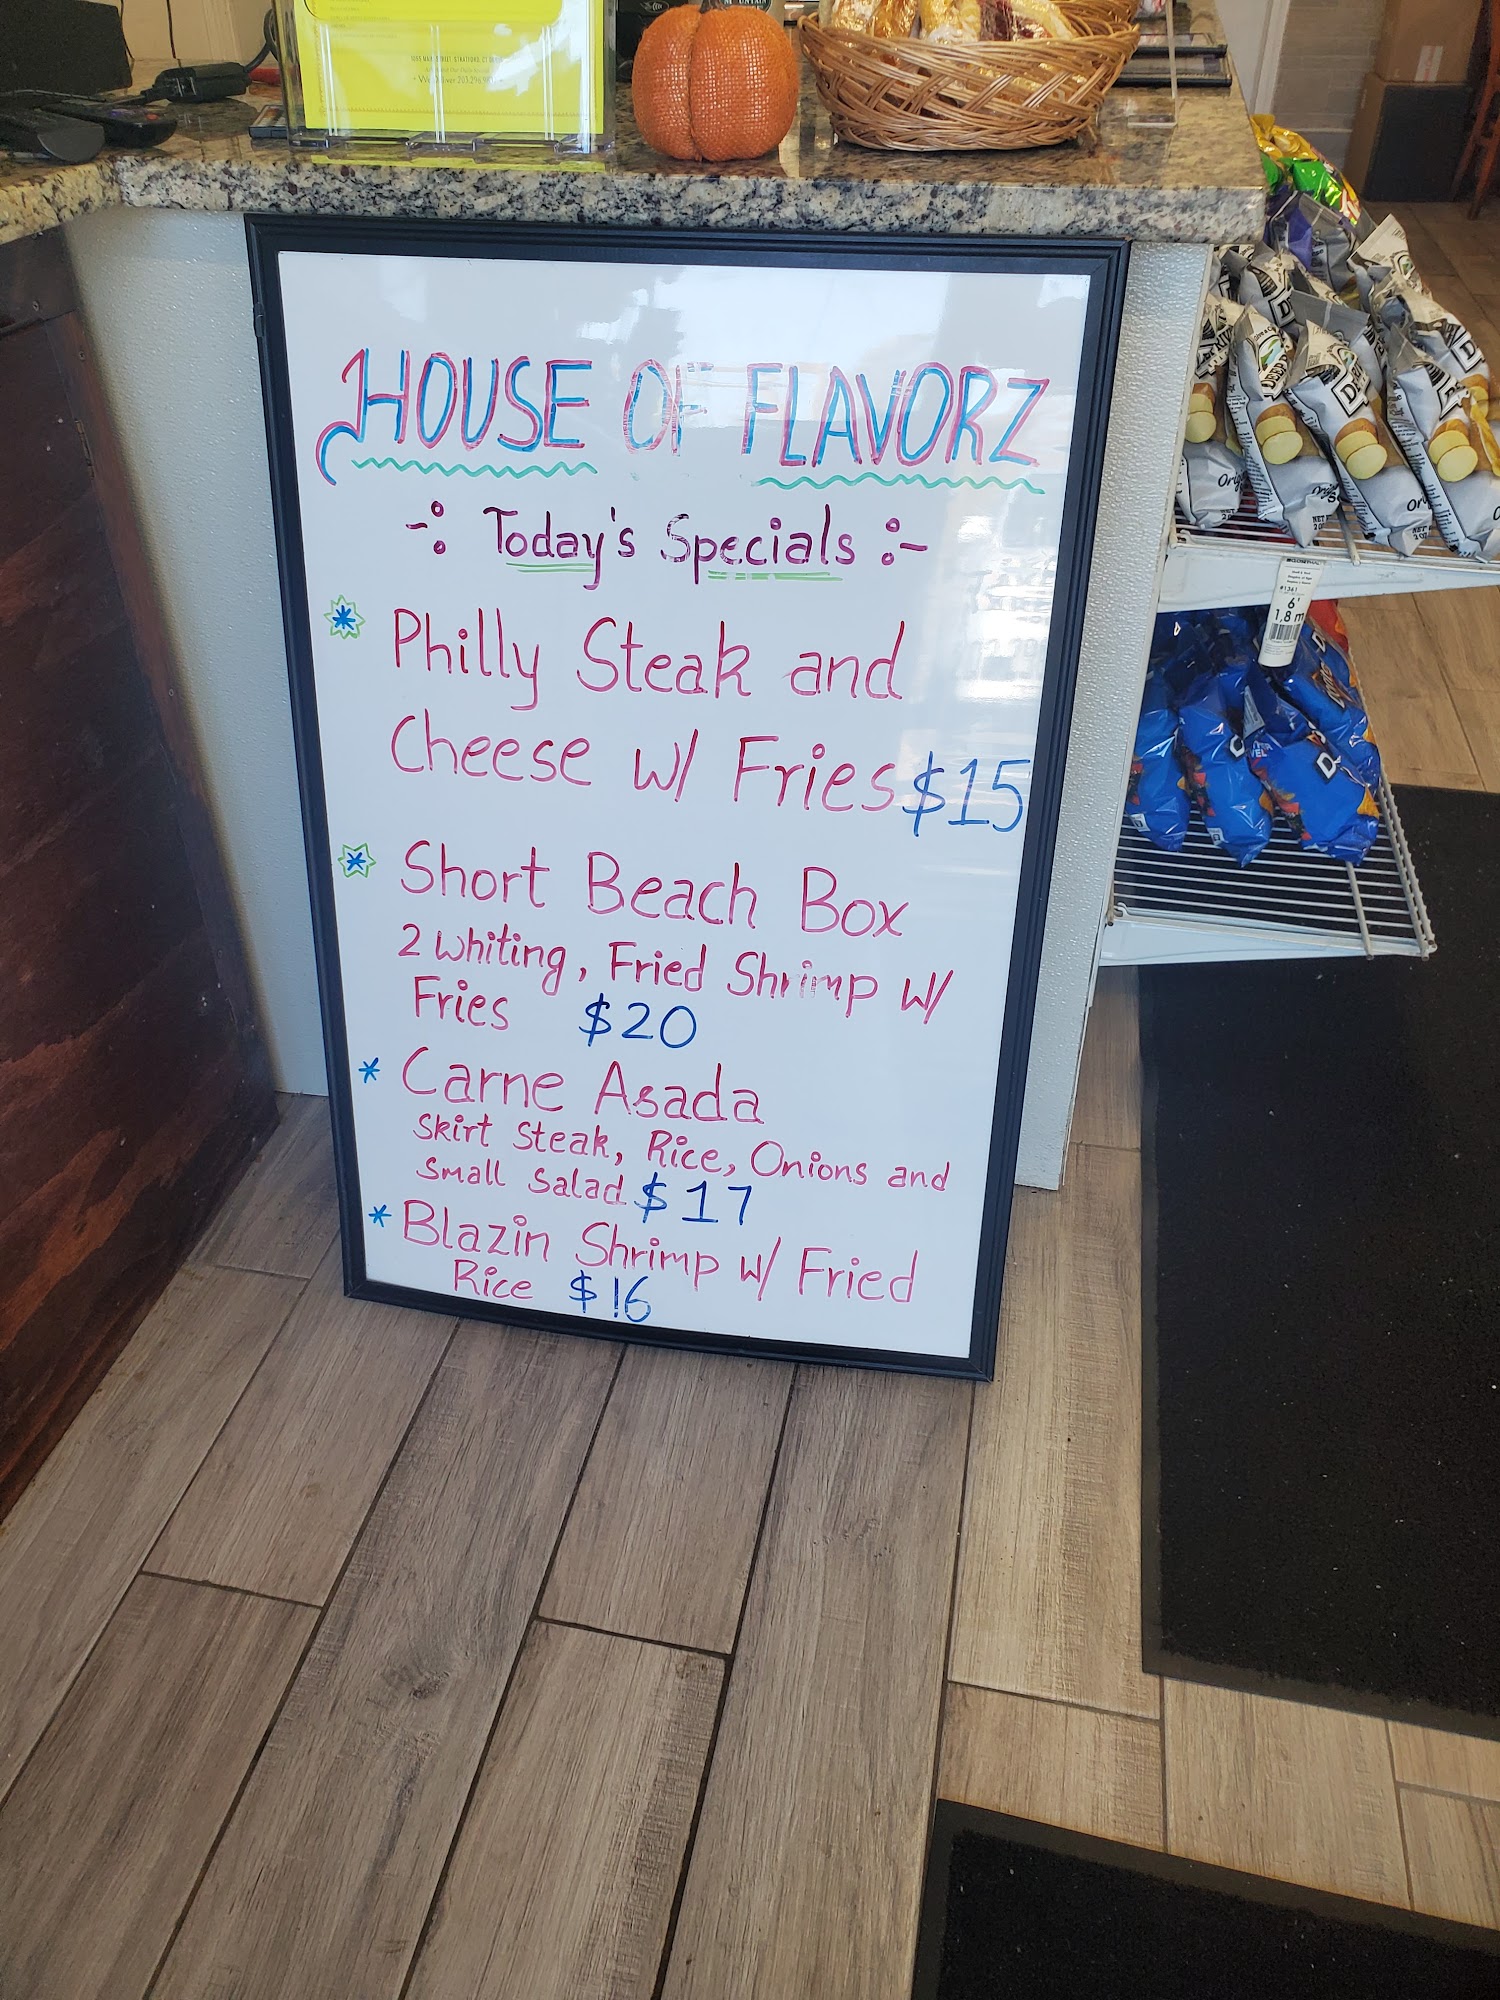 HOUSE OF FLAVORZ
Today's Specials
* Philly Steak and
Cheese w/ Fries $15
* Short Beach Box
2 Whiting, Fried Shrimp w/
Fries $20
* Carne Asada
Skirt Steak, Rice, Onions and
Small Salad $17
* Blazin Shrimp w/ Fried
Rice $16
6'
1.8 m